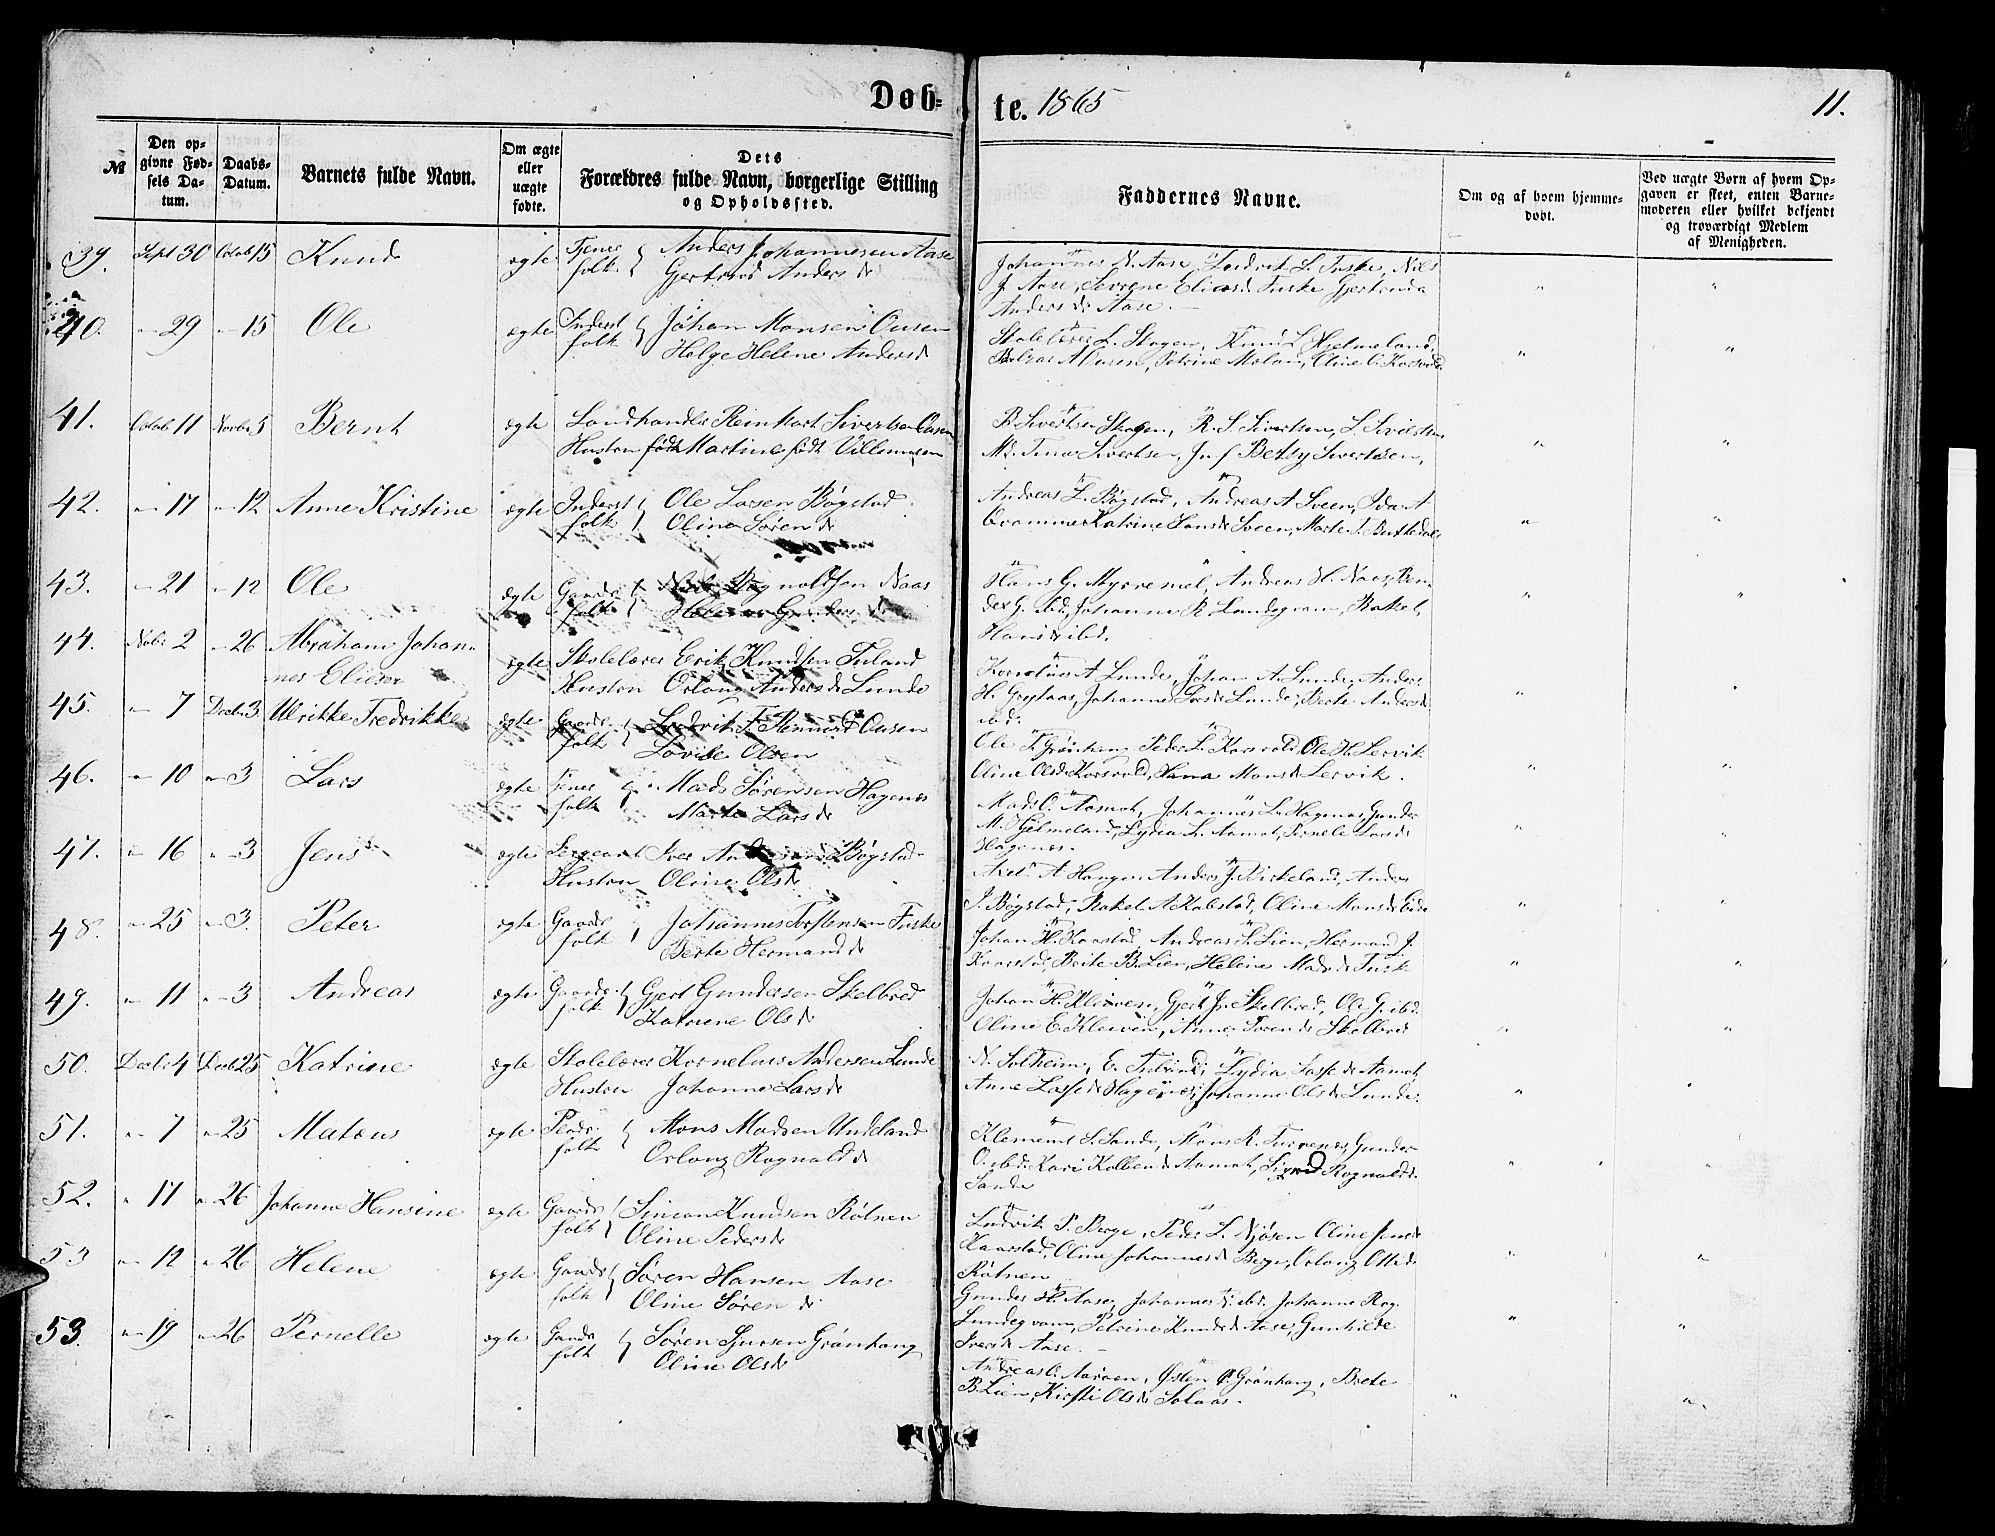 Døb-
te. 1865
11.
№
Den op-
givne Fød-
sels Da-
tum.
Daabs-
Datum.
Barnets fulde Navn.
Om ægte
eller
uægte
fødte.
Dets
Forældres fulde Navn, borgerlige Stilling
og Opholdssted.
Faddernes Navne.
Om og af hvem hjemme-
døbt.
Ved uægte Børn af hvem Op-
gaven er skeet, enten Barne-
moderen eller hvilket bekjendt
og troværdigt Medlem
af Menigheden.
39. Sept 30 Octob 15 Knud ægte Tjener folk Anders Johannesen Aase
Gjertrud Anders d.
Johannes N. Aase Ludvik L. Fuske, Nils
J. Aase, Severene Elias d. Fuske Gjertrud
Anders d. Aase.
40. " 29 " 15 Ole ægte Inderst folk Johan Monsen Ousen
Helge Helene Anders d.
Skolelærer L. Skogen, Knud L. Hjelmeland,
A Ousen, Petrine Oline O. Korsvold
41. Octob 11 Novbr 5 Bernt ægte Landhandler Reinhart Sivertsen Ousen
Hustru født Martine født Villumsen
B Sivertsen Skogen, R. S Sivertsen, L. Sivertsen
Md. Tina Sivertsen, Jnf Betsy Sivertsen,
42. " 17 " 12 Anne Kristine ægte Inderst folk Ole Larsen Bøgstad
Oline Søren d.
Andreas L. Bøgstad, Andreas A Sveen, Ida A
Katrine Hans d. Sveen, Marte
43. " 21 " 12 Ole ægte Gaardb folk Rognaldsen Naas
Helene Gunders d.
Hans G. Myrremel, Andreas H. Naas,
G. ibd, Johanne R Landegram, Rakel
Hans d. ibd.
44. Nobr 2 " 26 Abraham Johan-
nes Elieser ægte Skolelærer Erik Knudsen Tuland
Hustru Orlaug Anders d. Lunde
Kornelius A Lunde, Johan A. Lunde, Anders
H. Grytaas, Johanne Lars d. Lunde, Berte Anders d
ibd.
45. " 7 Decbr 3 Ulrikke Fredrikke ægte Gaardb. folk Ludvik F. Ousen
Lovise Olsen
Ole T. Grønhaug Peder L. Korsvold, Ole H. Lervik
Oline Ols d. Korsvold, Hana Mons d. Lervik.
46. " 10 " 3 Lars ægte Tjener folk Mads Sørensen Hagenæs
Marta Lars d.
Mads O. Aamot, Johannes L. Hagenæs, Gunder
M. Hjelmeland, Lydia L. Aamot, Pernele Lars d.
Hagenæs.
47. " 16 " 3 Jens ægte Sergeant Iver Andersen Bøgstad
Hustru Oline Ols d.
Axel A Haugen Anders J. Birkeland, Anders
I. Bøgstad, Rakel A Kalstad, Oline Mons d.
48. " 25 " 3. Peter ægte Gaardb folk Johannes Torstensen Fuske
Berte Hermand d.
Johan H. Kaarstad, Andreas S. Lien, Hermand J.
Kaarstad, Brite B. Lien, Helene Mads d. Fusk
49. " 11 " 3 Andreas ægte Gaardb folk Gjert Gundersen Skelbred
Katrine Ols d.
Johan H. Kleiven, Gjert J. Skelbred, Ole G. ibd.
Oline E. Kleiven, Anne Skelbred
50. Decbr 4 Decb 25 Katrine ægte Skolelærer Kornelius Andersen Lunde
Hustru Johanne Lars d.
N. Solheim, E. Lydia Lasse d. Aamot,
Anne Lasse d. Hagenæs, Johanne Ols d. Lunde.
51. " 7 " 25 Mateus ægte folk Mons Madsen Undeland
Orlaug Rognald d.
Klement S. Sande, Mons R. Turvenes, Gunder
O. ibd. Kari Kolben d. Aamot, Sigrid Rognald d.
Sande
52. " 17 " 26 Johanne Hansine ægte Gaardb folk Simon Knudsen Røtnen
Oline Peders d.
Ludvik P. Berge, Peder L. Njøsen Oline Jens d.
Kaarstad, Oline Johannes d. Berge, Orlaug Otte d.
Røtnen
53 " 12 " 26 Helene ægte Gaardb folk Søren Hansen Aase
Oline Søren d.
Gunder H. Aase, Johannes N. ibd. Johanne Rog.
Petrine Knud d. Aase, Gunhilde
Aase.
53. " 19 " 26 Pernelle ægte Gaardb folk Søren Sjursen Grønhaug
Oline Ols d.
Andreas O. Aarøen, Østen P. Grønhaug, Brete
B. Lien, Kirsti Ols d. Solaas.